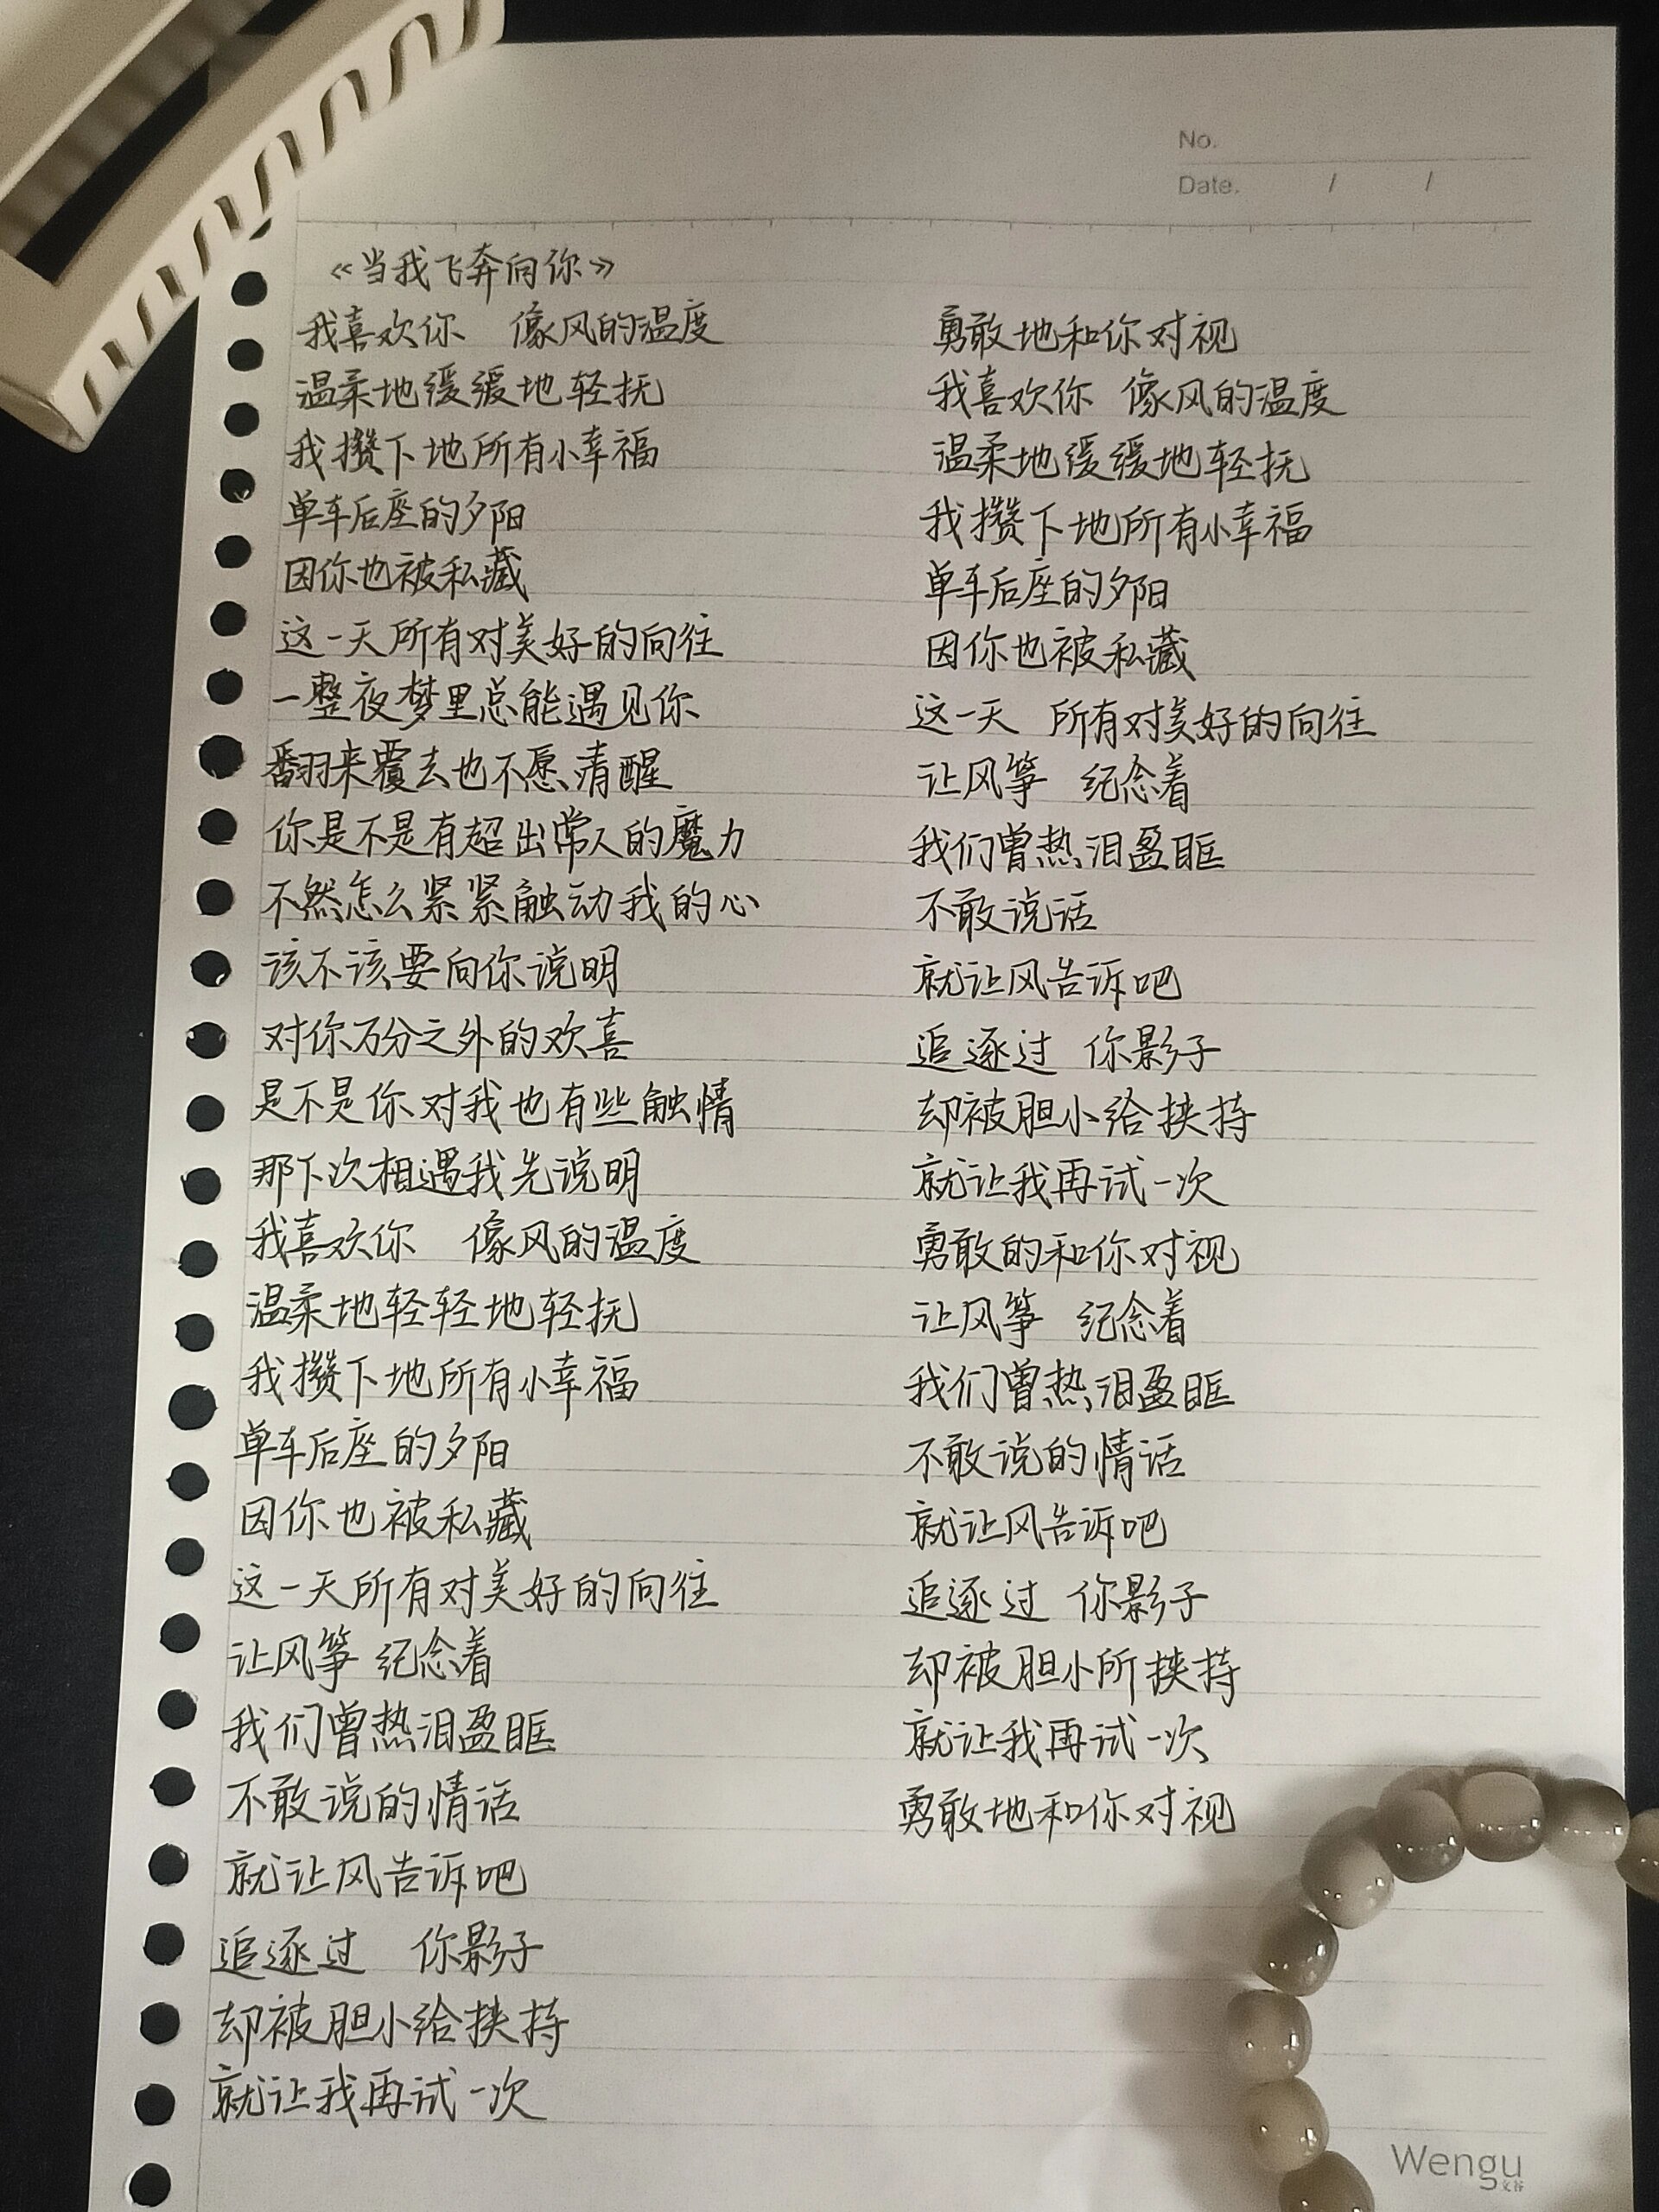 No.
Date. / /
《当我飞奔向你》
我喜欢你 像风的温度
温柔地缓缓地轻抚
我攒下地所有小幸福
单车后座的夕阳
因你也被私藏
这一天所有对美好的向往
一整夜梦里总能遇见你
翻来覆去也不愿清醒
你是不是有超出常人的魔力
不然怎么紧紧触动我的心
该不该要向你说明
对你万分之外的欢喜
是不是你对我也有些触情
那下次相遇我先说明
我喜欢你 像风的温度
温柔地轻轻地轻抚
我攒下地所有小幸福
单车后座的夕阳
因你也被私藏
这一天所有对美好的向往
让风筝 纪念着
我们曾热泪盈眶
不敢说的情话
就让风告诉吧
追逐过 你影子
却被胆小给挟持
就让我再试一次
勇敢地和你对视
我喜欢你 像风的温度
温柔地缓缓地轻抚
我攒下地所有小幸福
单车后座的夕阳
因你也被私藏
这一天 所有对美好的向往
让风筝 纪念着
我们曾热泪盈眶
不敢说话
就让风告诉吧
追逐过 你影子
却被胆小给挟持
就让我再试一次
勇敢的和你对视
让风筝 纪念着
我们曾热泪盈眶
不敢说的情话
就让风告诉吧
追逐过 你影子
却被胆小所挟持
就让我再试一次
勇敢地和你对视
Wengu
文谷